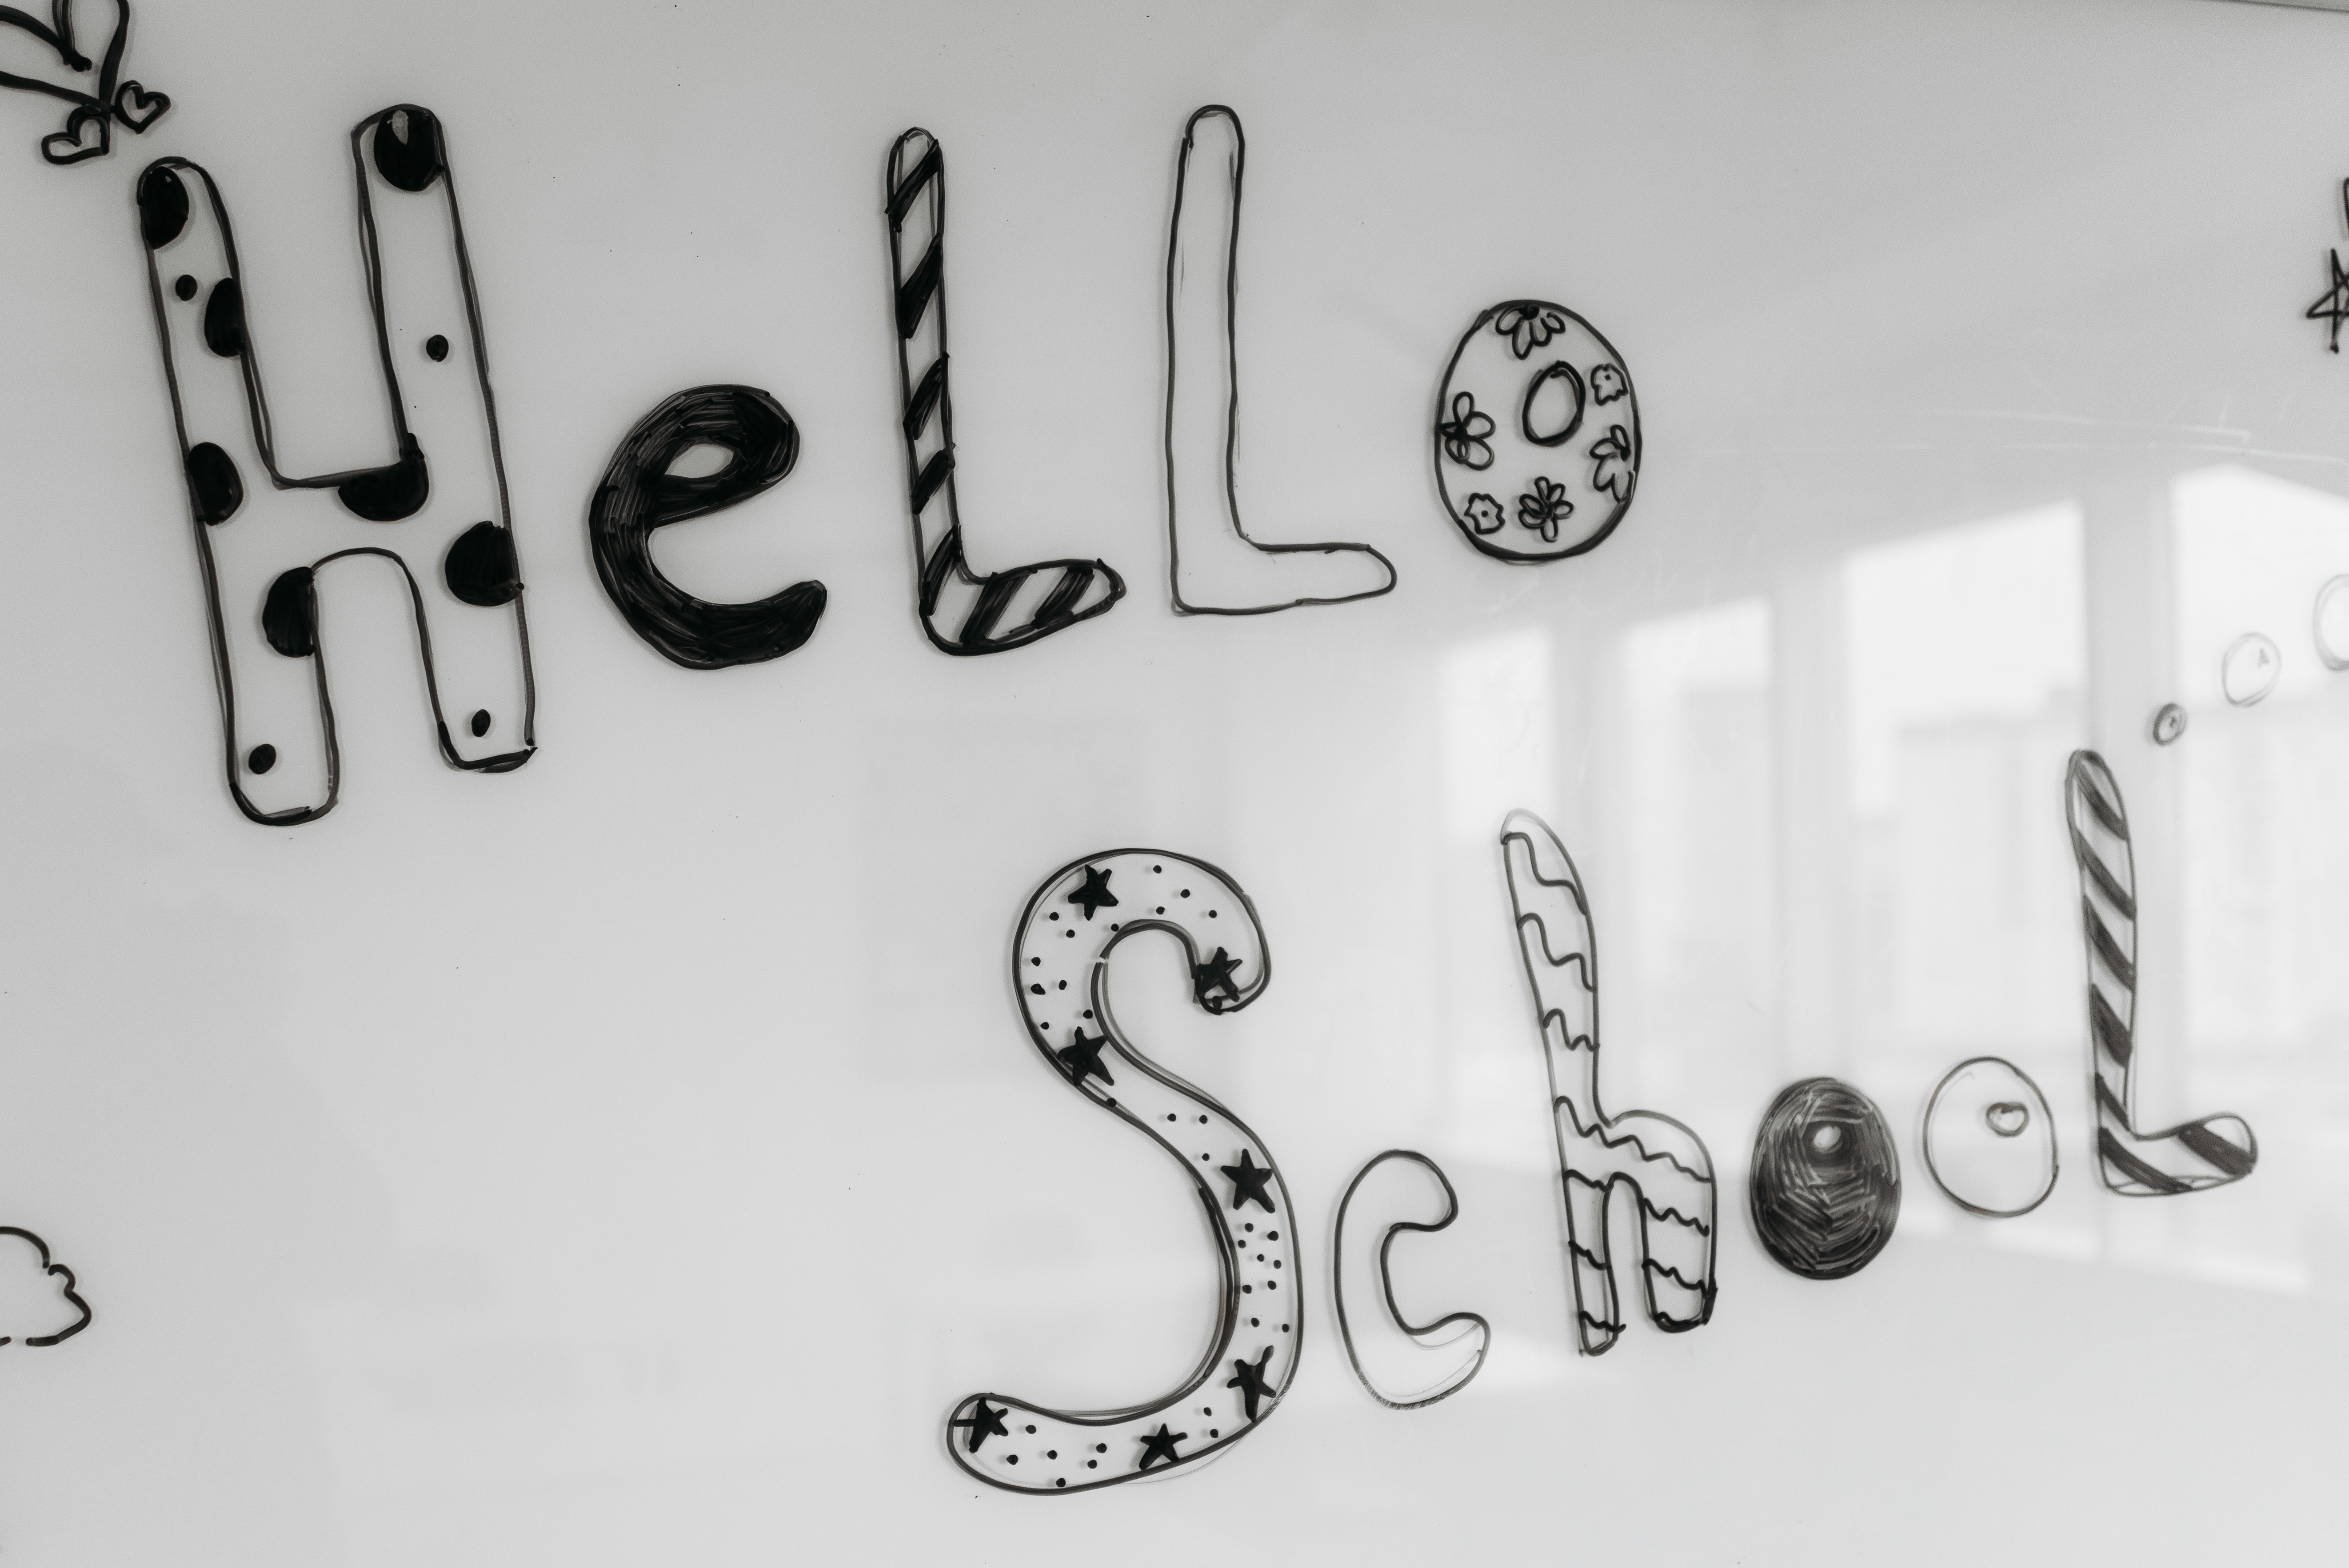 HeLLo
SchooL